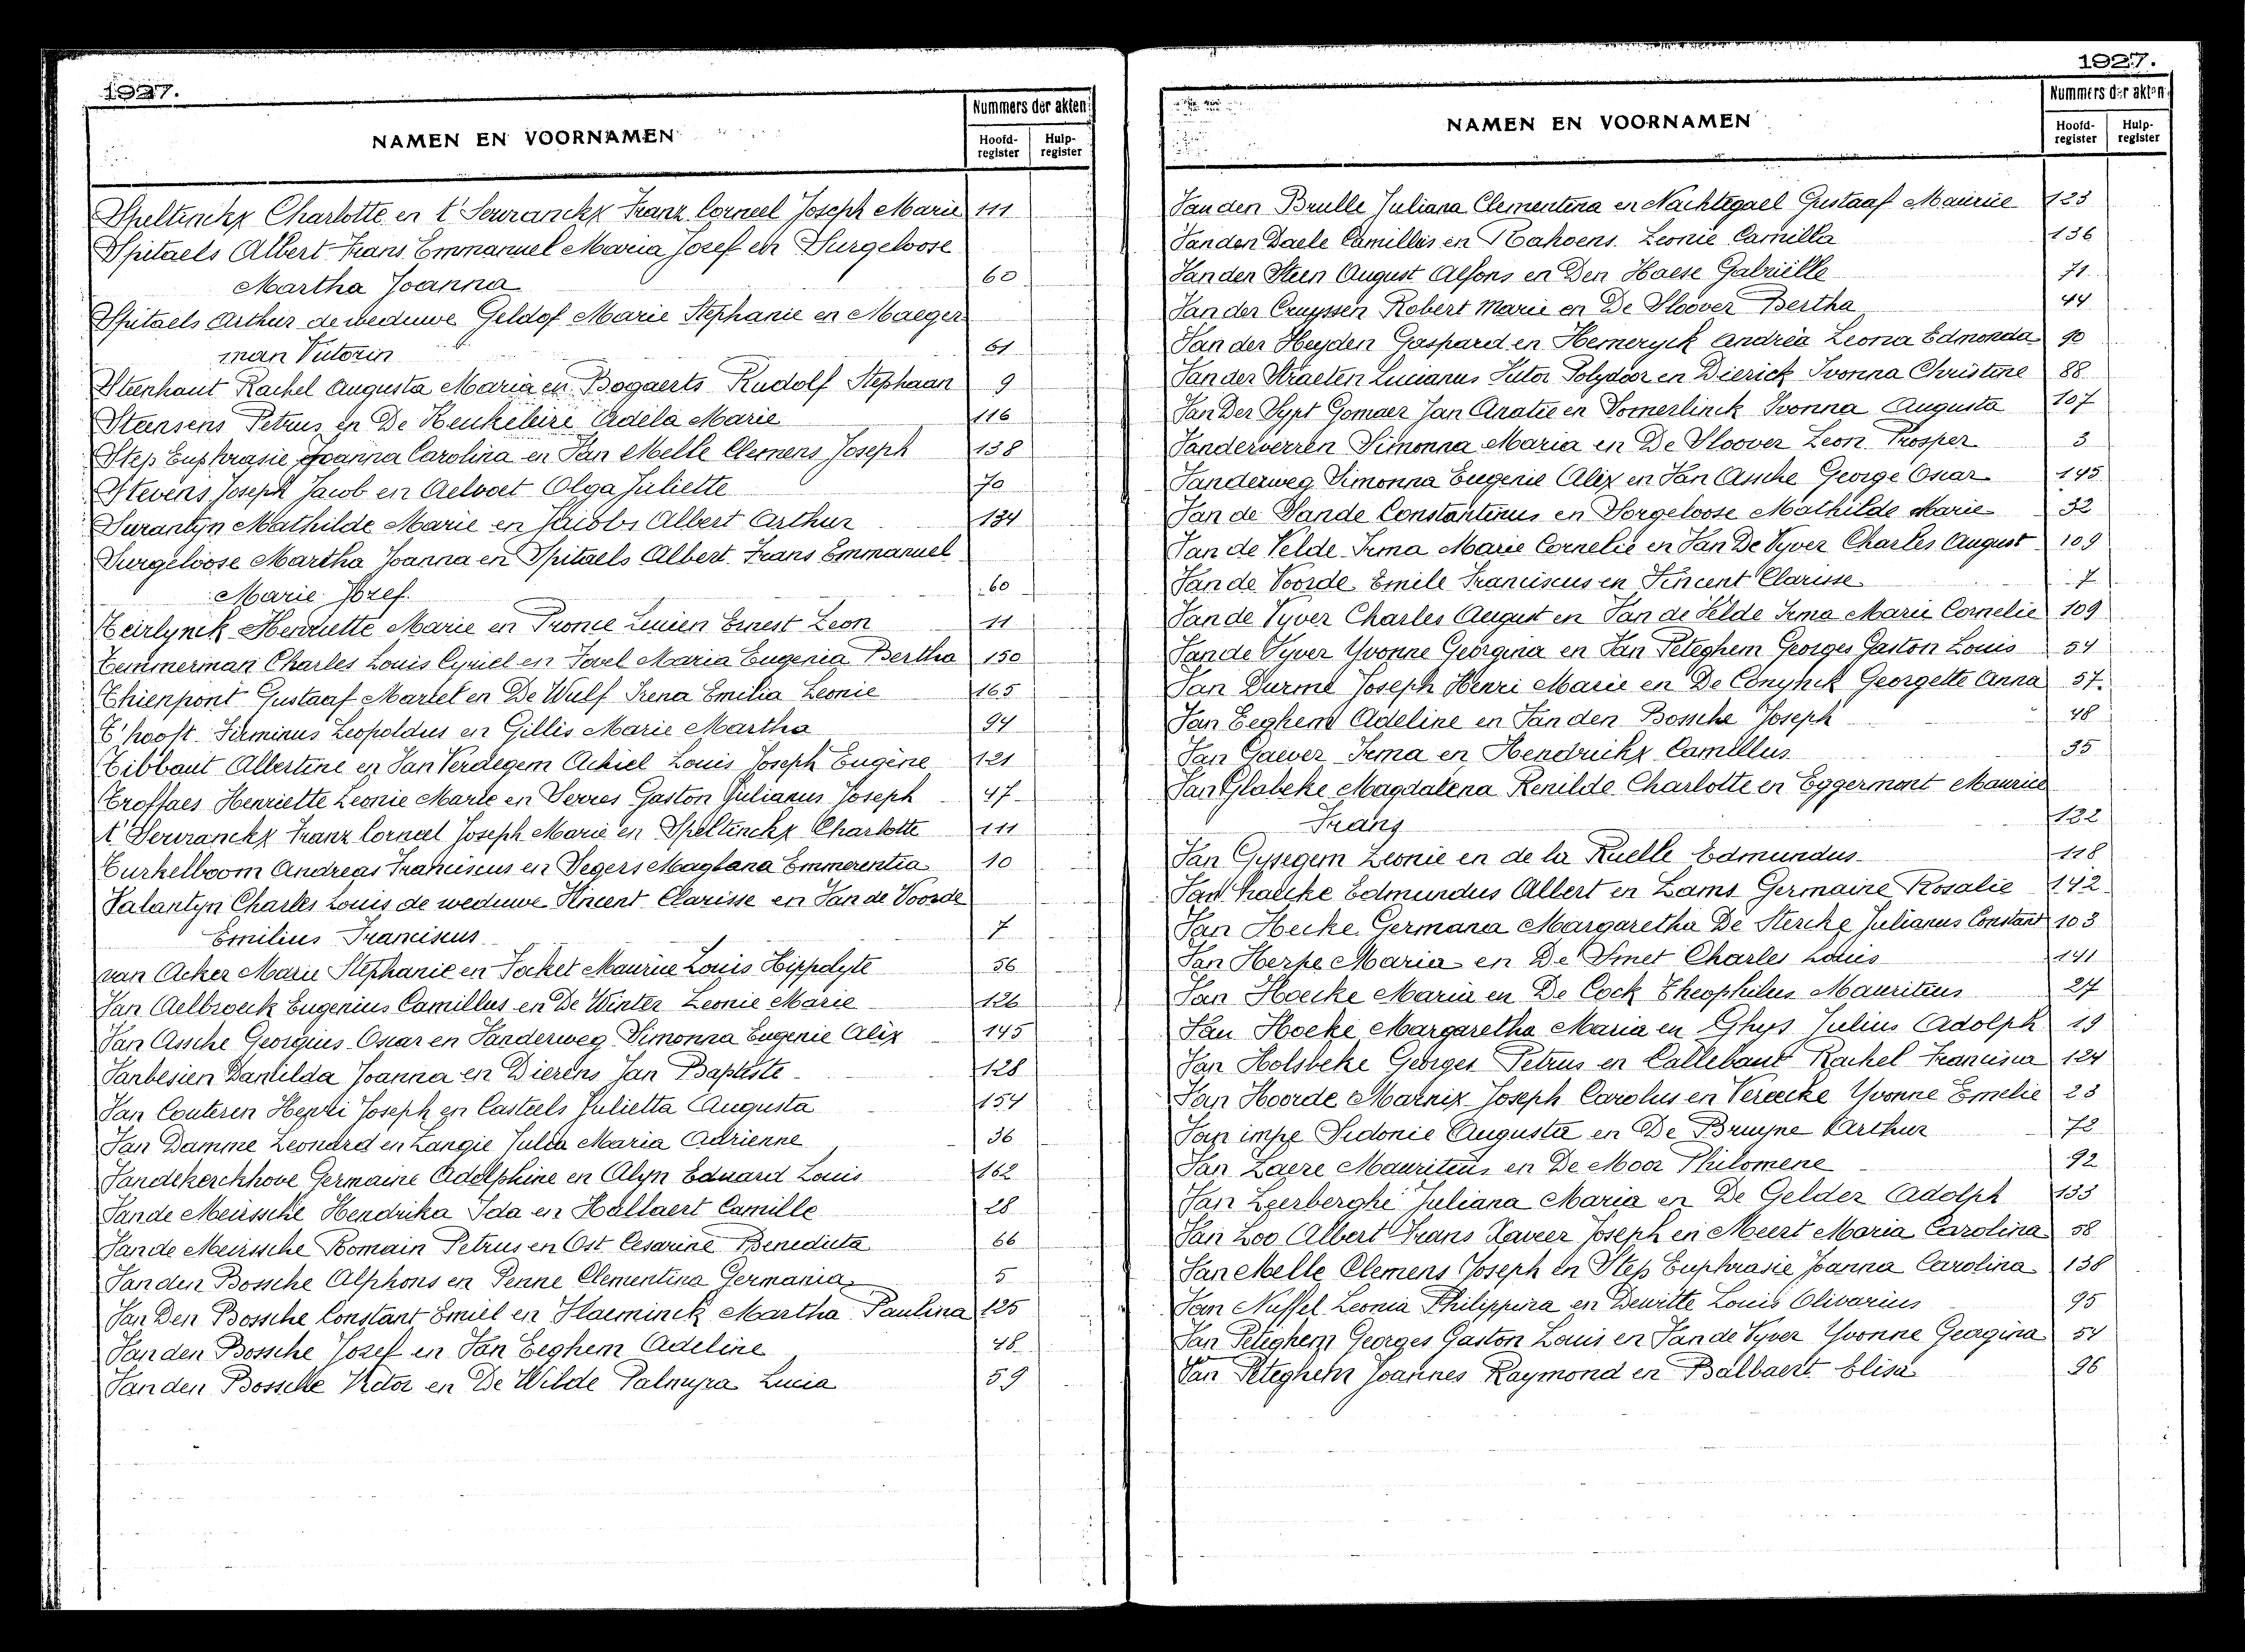 1927.
NAMEN EN VOORNAMEN
Nummers der akten
Hoofd-register
Hulp-register
Speltinckx Charlotte en t'Serranckx Franz Corneel Joseph Marie 111
Spitaels Albert Frans Emmanuel Maria Jozef en Surgeloose
Martha Joanna 60
Spitaels Arthur de weduwe Geldof Marie Stephanie en Maeger
man Victorin 61
Steenhaut Rachel Augusta Maria en Bogaerts Rudolf Stephaan 9
Steensens Petrus en De Keukeleire Adela Marie 116
Step Euphrasie Joanna Carolina en Van Melle Clemens Joseph 138
Stevens Joseph Jacob en Aelvoet Olga Juliette 70
Surantyn Mathilde Marie en Jacobs Albert Arthur 134
Surgeloose Martha Joanna en Spitaels Albert Frans Emmanuel
Marie Jozef. 60
Teirlynck Henriette Marie en Pronce Lucien Ernest Leon 11
Temmerman Charles Louis Cyriel en Tavel Maria Eugenia Bertha 150
Thienpont Gustaaf Martel en De Wulf Irena Emilia Leonie 165
T'hooft Firminus Leopoldus en Gillis Marie Martha 94
Tibbaut Albertine en Van Verdegem Achiel Louis Joseph Eugène 121
Troffaes Henriette Leonie Marie en Serres Gaston Julianus Joseph 47
t'Serranckx Franz Corneel Joseph Marie en Speltinckx Charlotte 111
Turkelboom Andreas Franciscus en Segers Magdana Emmerentia 10
Valantyn Charles Louis de weduwe Vincent Clarisse en Van de Voorde
Emilius Franciscus 7
van Acker Marie Stephanie en Focket Maurice Louis Hippolyte 56
Van Aelbroeck Eugenius Camillus en De Winter Leonie Marie 126
Van Assche Georgius Oscar en Vanderweg Simonna Eugenie Alix 145
Vanbesien Danilda Joanna en Dierens Jan Baptiste 128
Van Couteren Henri Joseph en Casteels Julietta Augusta 154
Van Damme Leonard en Langie Julia Maria Adrienne 36
Vandekerckhove Germaine Adolphine en Alyn Eduard Louis 162
Van de Meirssche Hendrika Ida en Hallaert Camille 28
Van de Meirssche Romain Petrus en Ost Cesarine Benedicta 66
Van den Bossche Alphons en Penne Clementina Germania 5
Van Den Bossche Constant Emiel en Vlaeminck Martha Paulina 125
Van den Bossche Jozef en Van Eeghem Adeline 48
Van den Bossche Victor en De Wilde Palmyra Lucia 59
1927.
NAMEN EN VOORNAMEN
Nummers der akten
Hoofd-register
Hulp-register
Van den Brulle Juliana Clementina en Nachtegael Gustaaf Maurice 123
Van den Daele Camillus en Rahoens Leonie Camilla 136
Van den Steen August Alfons en Den Haese Gabriëlle 71
Van der Cruyssen Robert Marie en De Sloover Bertha 44
Van der Heyden Gaspard en Hemeryck Andréa Leona Edmonda 90
Van der Straeten Lucianus Victor Polydoor en Dierick Ivonna Christine 88
Van Der Sypt Gomaer Jan Anatie en Somerlinck Ivonna Augusta 107
Vanderverren Simonna Maria en De Sloover Leon Prosper 3
Vanderweg Simonna Eugenie Alix en Van Assche George Oscar 145
Van de Sande Constantinus en Sorgeloose Mathilde Marie 32
Van de Velde Irma Marie Cornelie en Van De Vyver Charles August 109
Van de Voorde Emile Franciscus en Vincent Clarisse 7
Van de Vyver Charles August en Van de Velde Irma Marie Cornelie 109
Van de Vyver Yvonne Georgina en Van Peteghem Georges Gaston Louis 54
Van Durme Joseph Henri Marie en De Conynck Georgette Anna 57.
Van Eeghem Adeline en Van den Bossche Joseph 48
Van Gaever Irma en Hendrickx Camillus 35
Van Glabeke Magdalena Renilde Charlotte en Eggermont Maurice
Frans 132
Van Gysegem Leonie en de la Ruelle Edmundus 118
Van haecke Edmundus Albert en Lams Germaine Rosalie 142
Van Hecke Germana Margaretha De Stercke Julianus Constant 103
Van Herpe Maria en De Smet Charles Louis 141
Van Hoecke Maria en De Cock Theophilus Mauritius 27
Van Hoeke Margaretha Maria en Ghys Julius Adolph 19
Van Holsbeke Georges Petrus en Callebaut Rachel Francisca 124
Van Hoorde Marnix Joseph Carolus en Vereecke Yvonne Emelie 23
Van impe Sidonie Augusta en De Bruyne Arthur 72
Van Laere Mauritius en De Moor Philomene 92
Van Leerberghe Juliana Maria en De Gelder Adolph 133
Van Loo Albert Frans Xaveer Joseph en Meert Maria Carolina 58
Van Melle Clemens Joseph en Step Euphrasie Joanna Carolina 138
Van Nuffel Leonia Philippina en Dewitte Louis Olivarius 95
Van Peteghem Georges Gaston Louis en Van de Vyver Yvonne Georgina 54
Van Peteghem Joannes Raymond en Balbaert Elisa 96